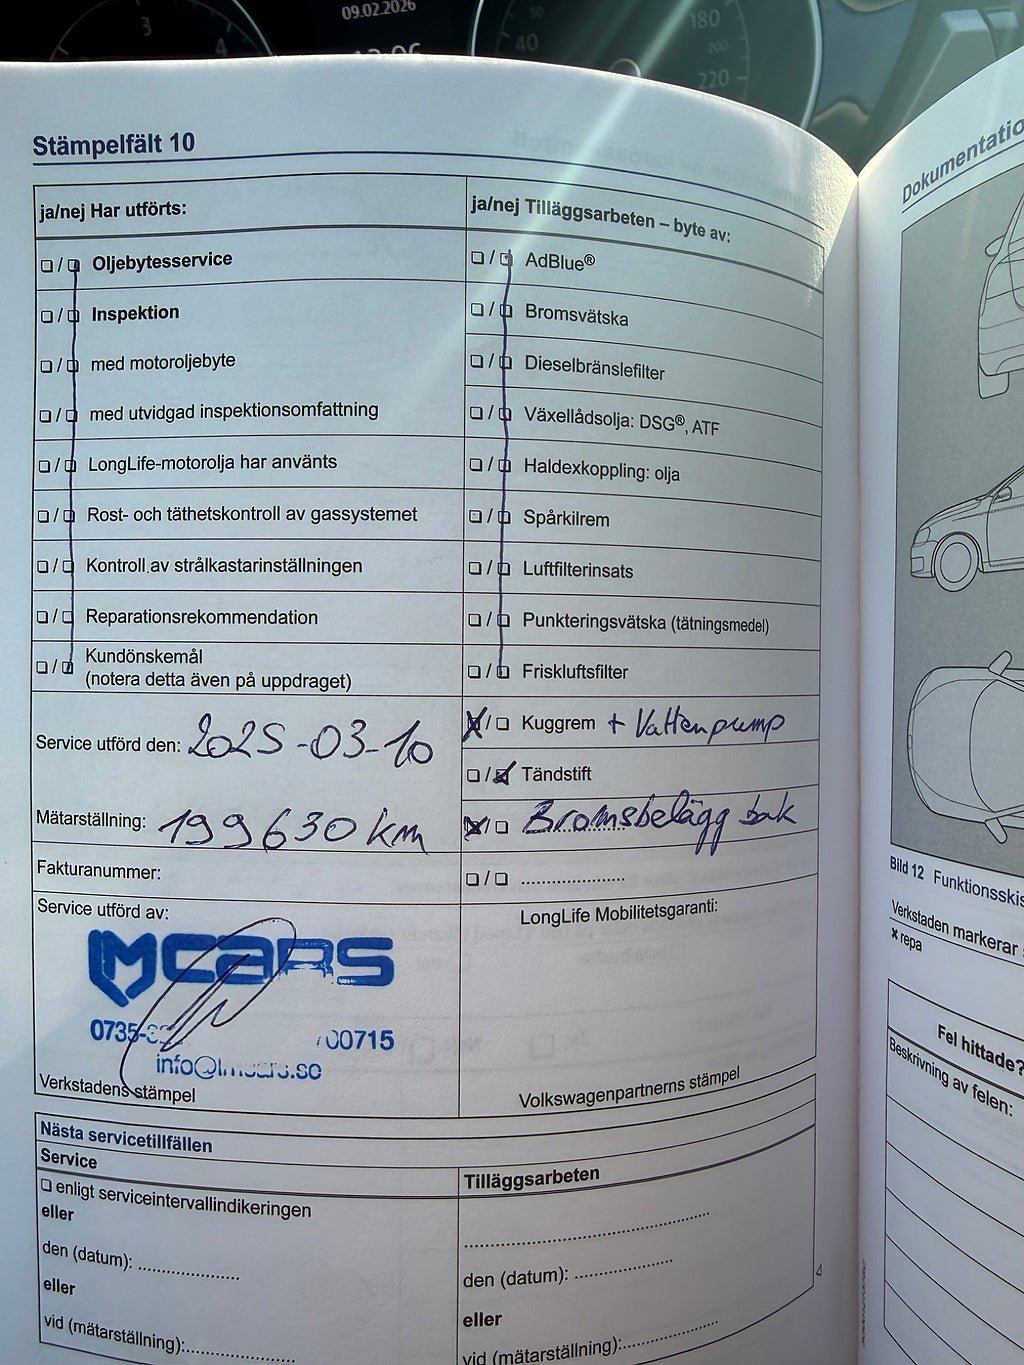 09.02.2026
3
4
40
50
180
200
220
Stämpelfält 10
ja/nej Har utförts:
Oljebytesservice
Inspektion
med motoroljebyte
med utvidgad inspektionsomfattning
LongLife-motorolja har använts
Rost- och täthetskontroll av gassystemet
Kontroll av strålkastarinställningen
Reparationsrekommendation
Kundönskemål
(notera detta även på uppdraget)
Service utförd den: 2025-03-10
Mätarställning: 199630 km
Fakturanummer:
Service utförd av:
LMCARS
0735- 00715
Verkstadens stämpel
ja/nej Tilläggsarbeten – byte av:
AdBlue®
Bromsvätska
Dieselbränslefilter
Växellådsolja: DSG®, ATF
Haldexkoppling: olja
Spårkilrem
Luftfilterinsats
Punkteringsvätska (tätningsmedel)
Friskluftsfilter
Kuggrem + Vattenpump
Tändstift
Bromsbelägg bak
....................
LongLife Mobilitetsgaranti:
Volkswagenpartnerns stämpel
Nästa servicetillfällen
Service
enligt serviceintervallindikeringen
eller
den (datum): ....................
eller
vid (mätarställning):....................
Tilläggsarbeten
..................................................
den (datum): ....................
eller
vid (mätarställning):....................
Bild 12 Funktionsskis
Verkstaden markerar
× repa
Fel hittade?
Beskrivning av felen: